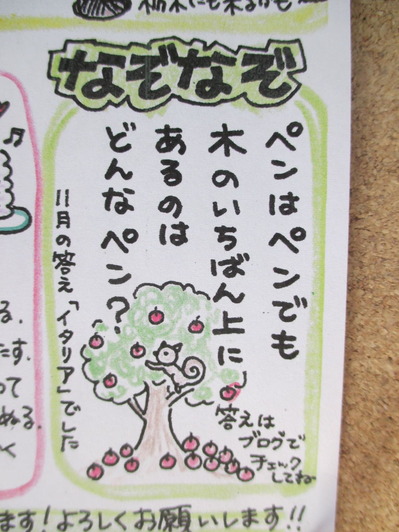 なぞなぞ
ペンはペンでも
木のいちばん上に
あるのは
どんなペン?
11月の答え「イタリア」でした
答えは
ブログで
チェック
してね
る.
たす.
って
ぬる.
く
ます!よろしくお願いします!!